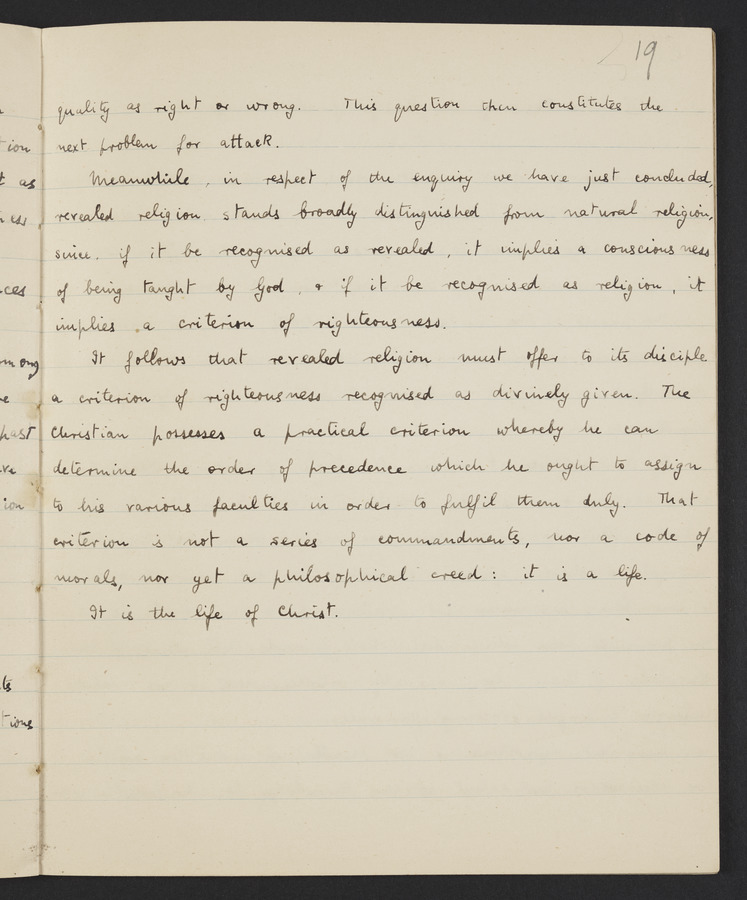 19
quality as right or wrong. This question then constitutes the
next problem for attack.
Meanwhile, in respect of the enquiry we have just concluded,
revealed religion stands broadly distinguished from natural religion,
since, if it be recognised as revealed, it implies a consciousness
of being taught by God, & if it be recognised as religion, it
implies a criterion of righteousness.
It follows that revealed religion must offer to its disciple
a criterion of righteousness recognised as divinely given. The
Christian possesses a practical criterion whereby he can
determine the order of precedence which he ought to assign
to his various faculties in order to fulfil them duly. That
criterion is not a series of commandments, nor a code of
morals, nor yet a philosophical creed: it is a life.
It is the life of Christ.